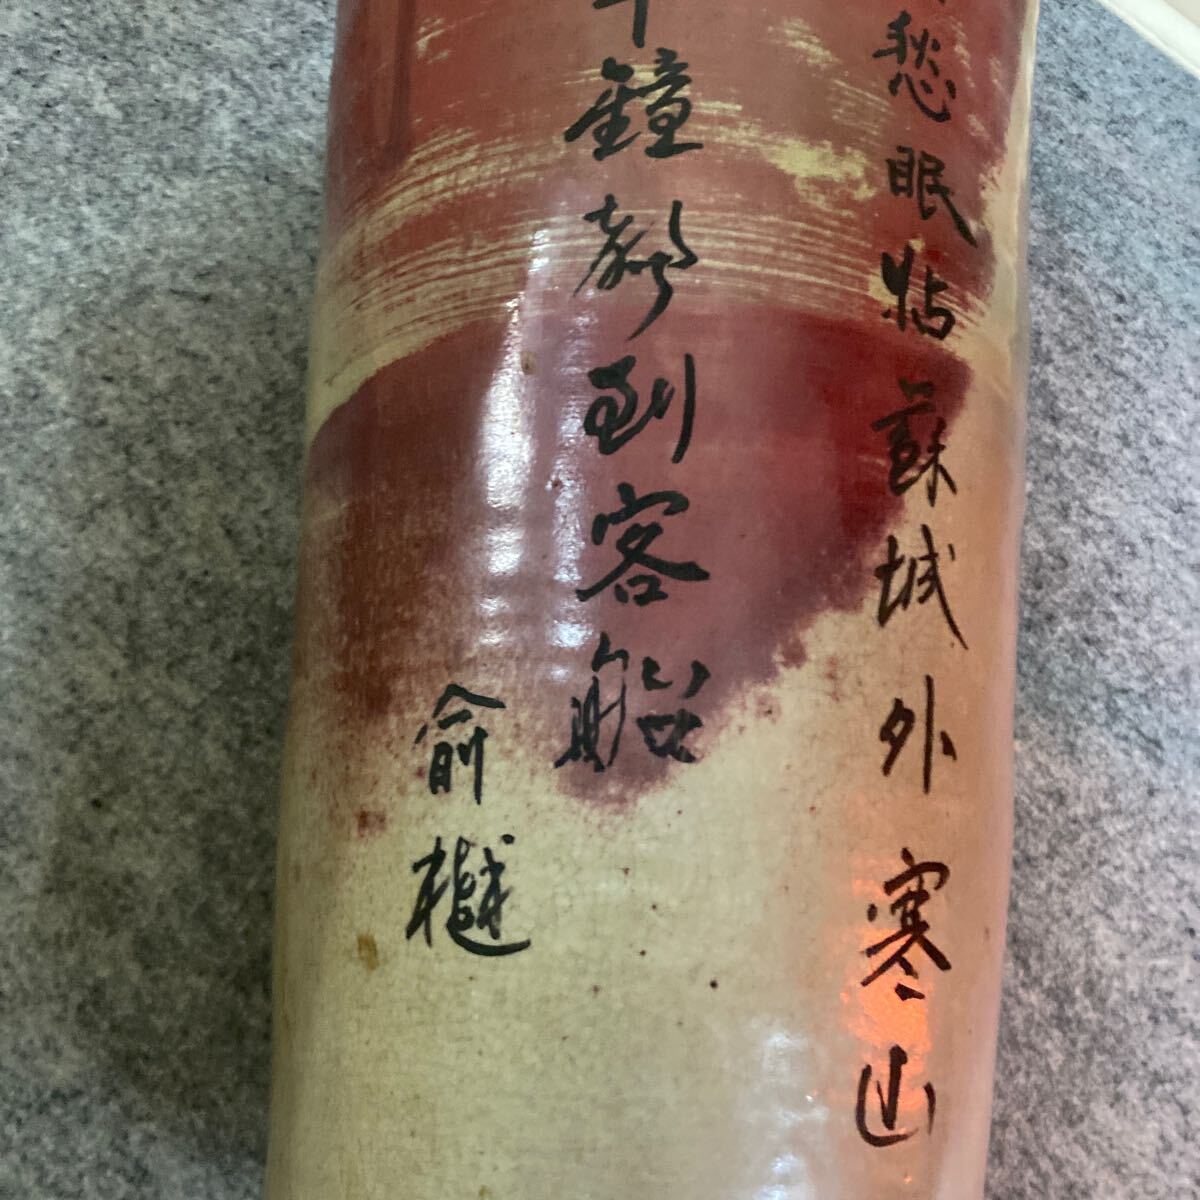 愁眠姑蘇城外寒山
鐘聲到客船
俞樾